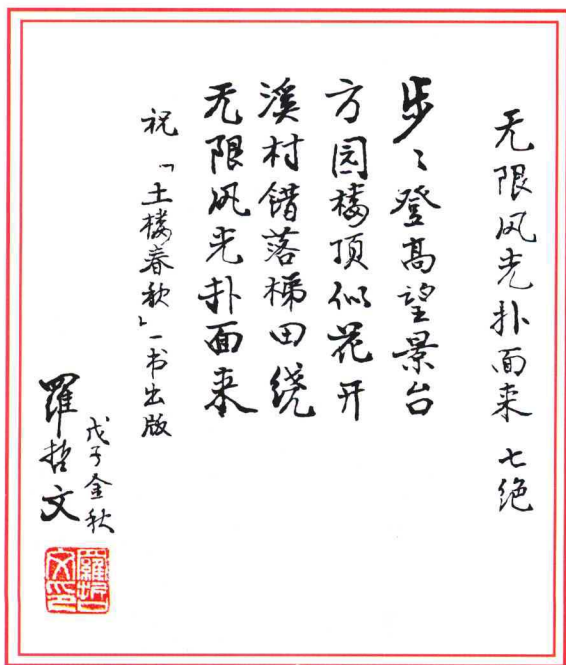 无限风光扑面来 七绝
步々登高望景台
方园楼顶似花开
溪村错落梯田绕
无限风光扑面来
祝「土楼春秋」一书出版
戊子金秋
羅哲文
羅哲文印